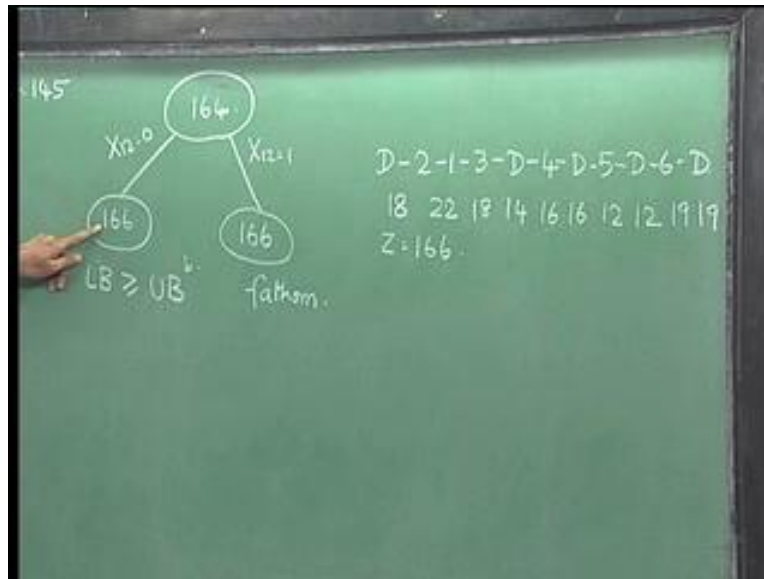 145
164.
X12=0
X12=1
166
166
LB ≥ UB
fathom.
D-2-1-3-D-4-D-5-D-6-D
18 22 18 14 16 16 12 12 19 19
Z=166.